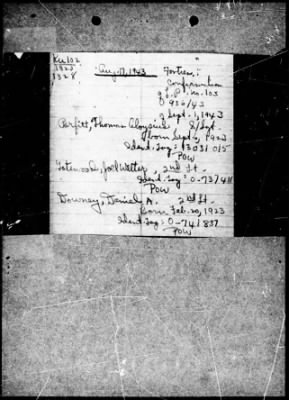 Ku 102
1323
1328
Aug. 17, 1943
Fortress,
Confirmation
No. 103
0 936/43
9 Sept. 1, 1943
Perfitt, Thomas Aloysius S/Sgt.
born Sept. , 1923
Ident. Tag: 13031015
POW
Joel Walter, 2nd Lt.
Ident. Tag: 0-737411
POW
Downey, Daniel A. 2nd Lt.
born Feb. 20, 1923
Ident. Tag: 0-741837
POW